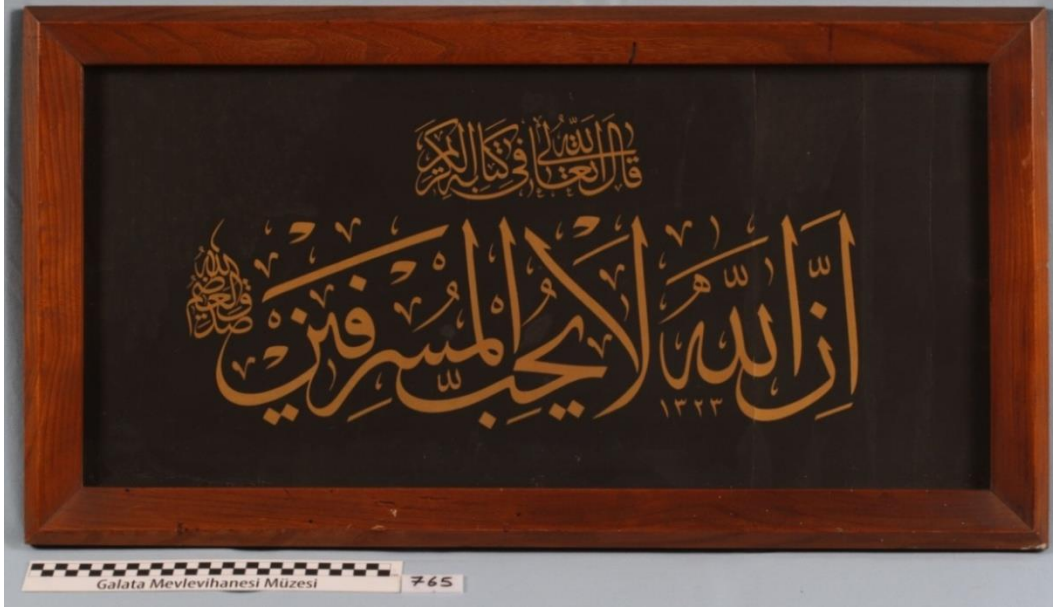 قال الله تعالى في كتابه الكريم
ان الله لا يحب المسرفين
صدق الله العظيم
١٣٢٣
Galata Mevlevihanesi Müzesi
765